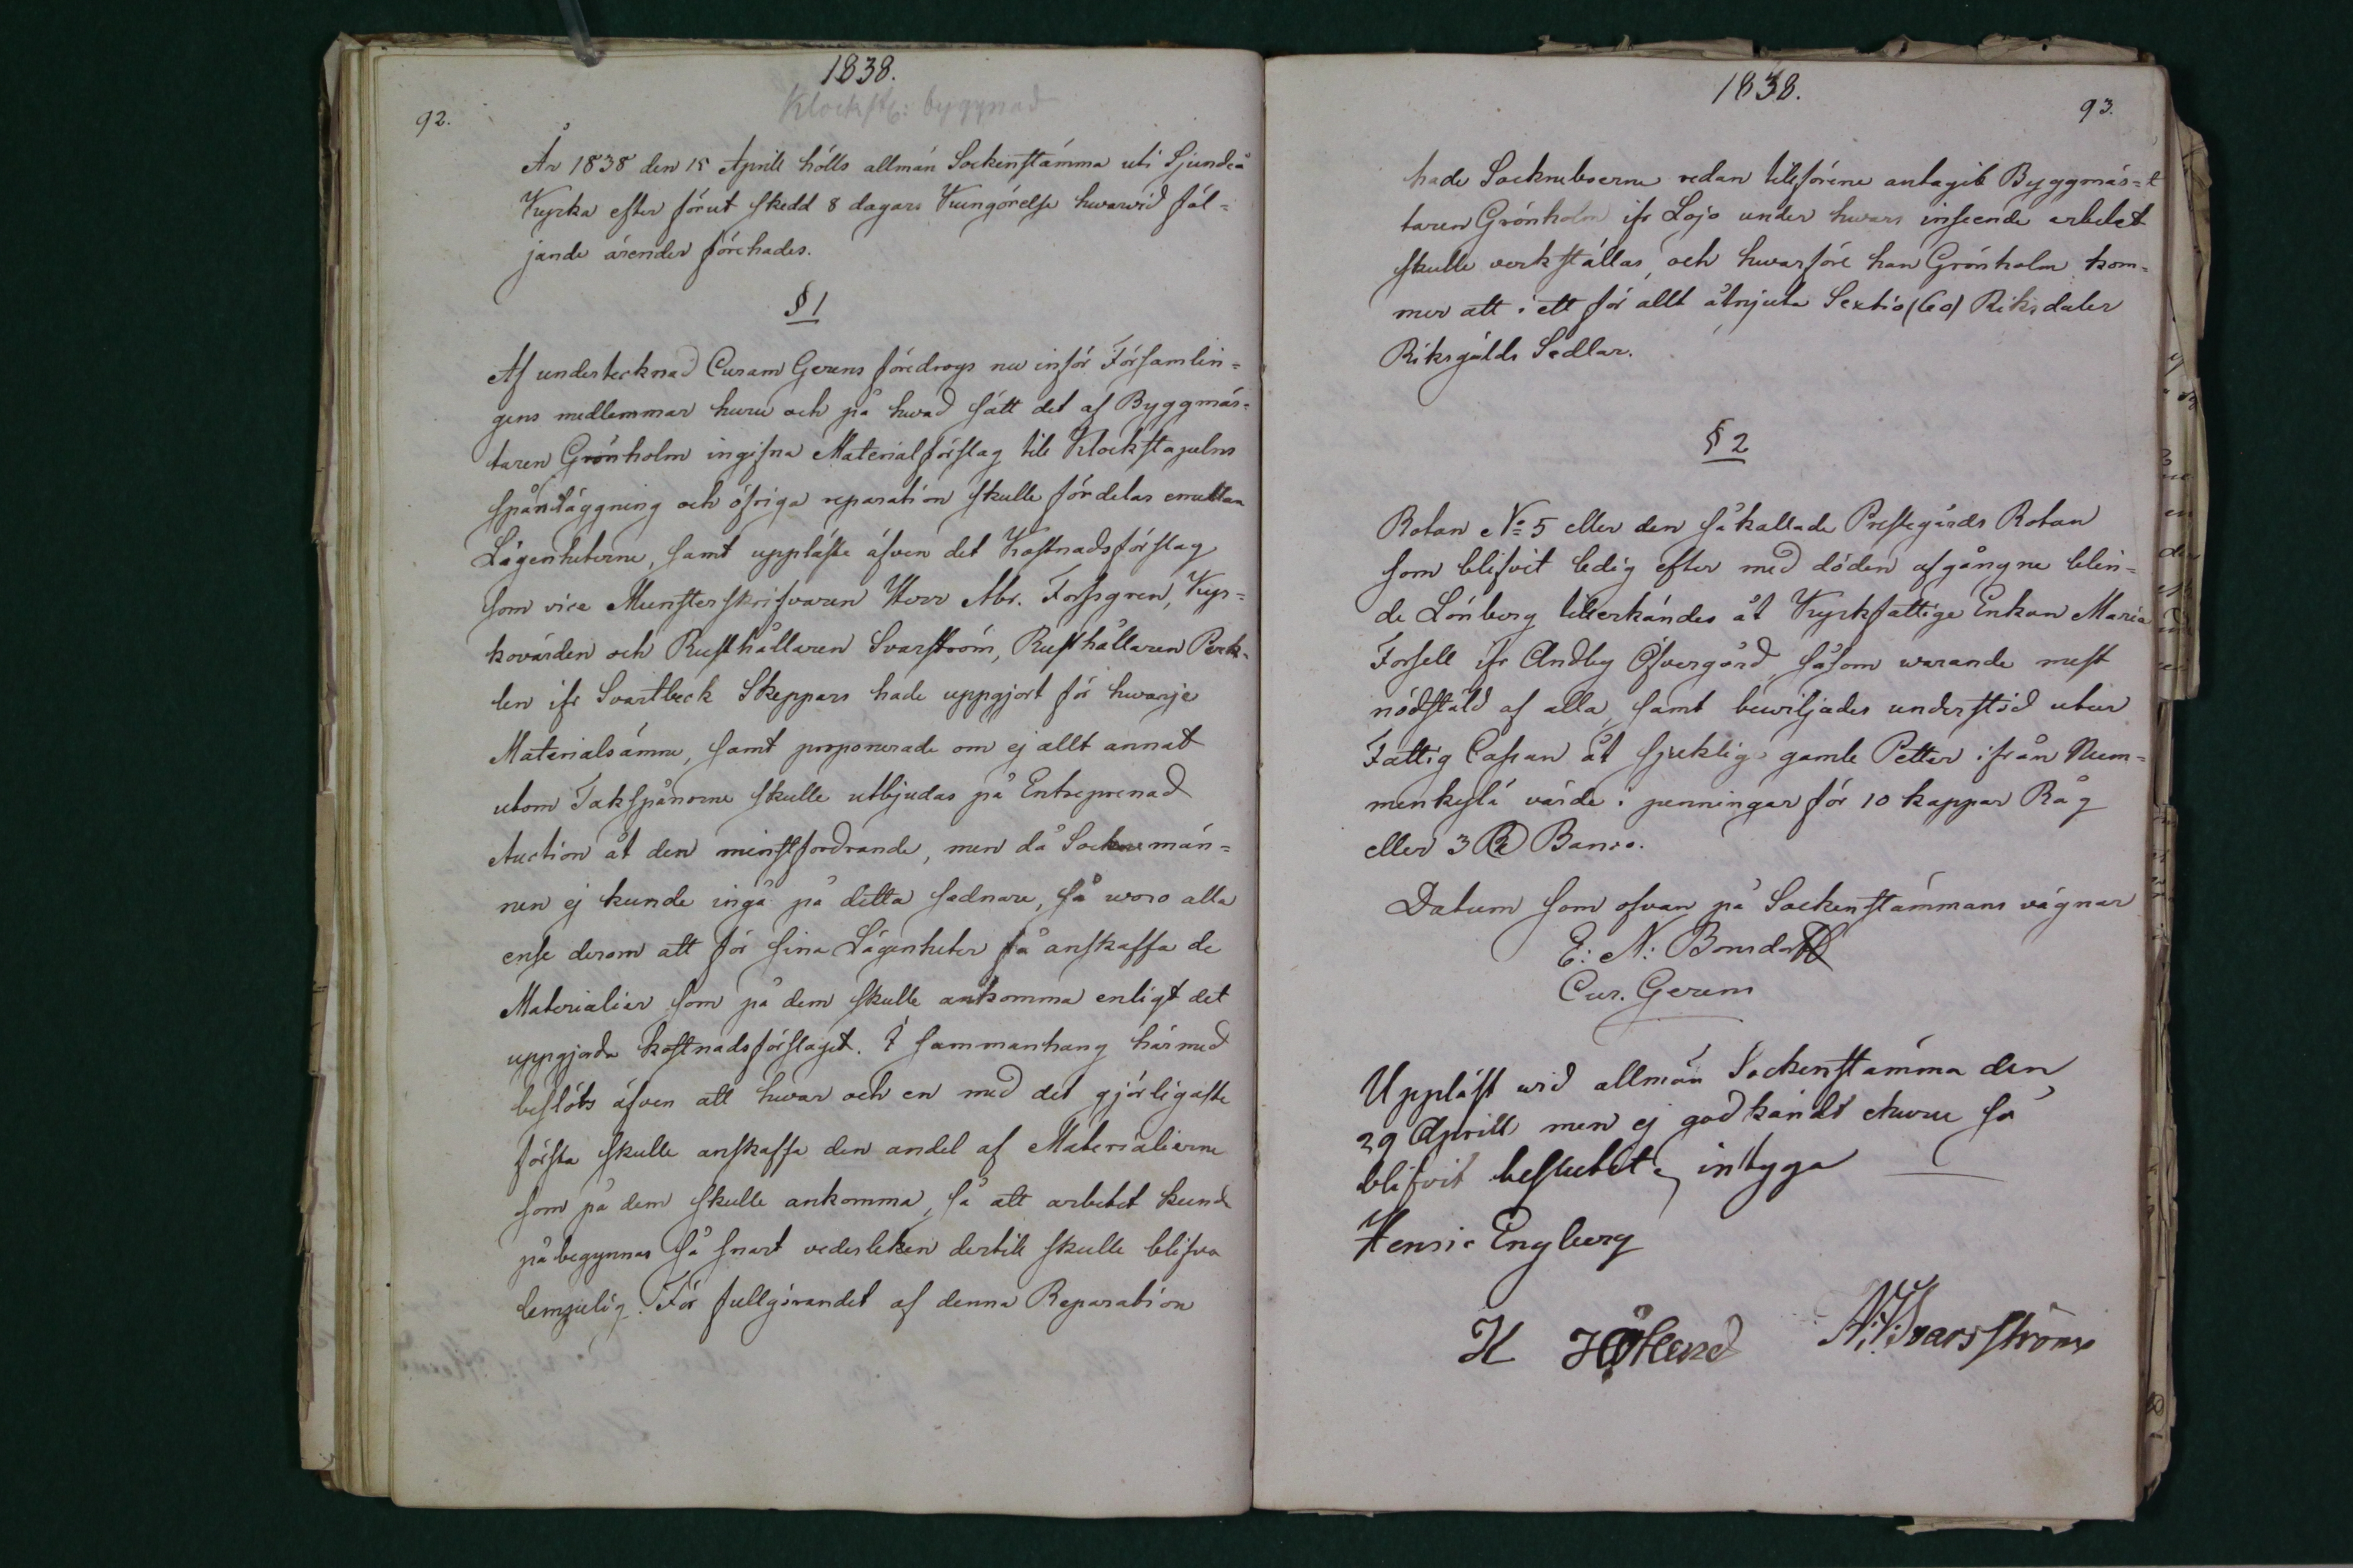 1838.
Klockst: byggnad
92.
År 1838 den 15 Aprill hölls allmän Sockenstämma uti Sjundeå
Kyrka efter förut skedd 8 dagars Kungörelse hwarwid föl-
jande ärender förehades.
§ 1
Af undertecknad Curam Gerens föredrogs nu inför Församlin-
gens medlemmar huru och på hwad sätt det af Byggmäs-
taren Grönholm ingifna Materialförslag till Klockstapelns
spånläggning och öfriga reparation skulle fördelas emellan
Lägenheterne, samt upplästes äfven det Kostnadsförslag
som vice Munsterskrifvaren Herr Abr. Forsgren, Kyr-
kovärden och Rusthållaren Svarström, Rusthållaren Perk-
len ifr Svartbeck Skeppars hade uppgjort för hwarje
Materialsämne, samt proponerade om ej allt annat
utom Takspånorne skulle utbjudas på Entreprenad
Auction åt den minstfordrande, men då Sockenemän-
nen ej kunde ingå på detta sednare, så woro alla
ense derom att för sina Lägenheter få anskaffa de
Materialier som på dem skulle ankomma enligt det
uppgjorda kostnadsförslaget. I sammanhang härmed
beslöts äfven att hwar och en med det görligaste
första skulle anskaffa den andel af Materialierne
som på dem skulle ankomma, så att arbetet kunde
påbegynnas så snart väderleken dertill skulle blifva
lempelig. För fullgörandet af denna Reparation
1838.
93.
hade Sockneboerne redan tillförene antagit Byggmäs-
taren Grönholm ifr Lojo under hwars inseende arbetet
skulle verkställas, och hwarföre han Grönholm kom-
mer att i ett för allt åtnjuta Sextio (60) Riksdaler
Riksgälds Sedlar.
§ 2
Rotan No 5 eller den såkallade Prestegårds Rotan
som blifvit ledig efter med döden afgångne blin-
de Lönberg tillerkändes åt Kyrkfattige Enkan Maria
Forsell ifr Andby Öfvergård, såsom warande mest
nödstäld af alla, samt bewiljades understöd utur
Fattig Cassan åt sjuklig gamle Petter ifrån Num-
menkylä värde i penningar för 10 kappar Råg
eller 3 Rd Banco.
Datum som ofvan på Sockenstämmans vägnar
E: N: Bonsdorff
Cur. Gerens
Uppläst wid allmän Sockenstämma den
29 Aprill men ej godkändt ehuru så
blifvit beslutet, intyga
Henric Engberg
H Höklund A: W: Svarsström